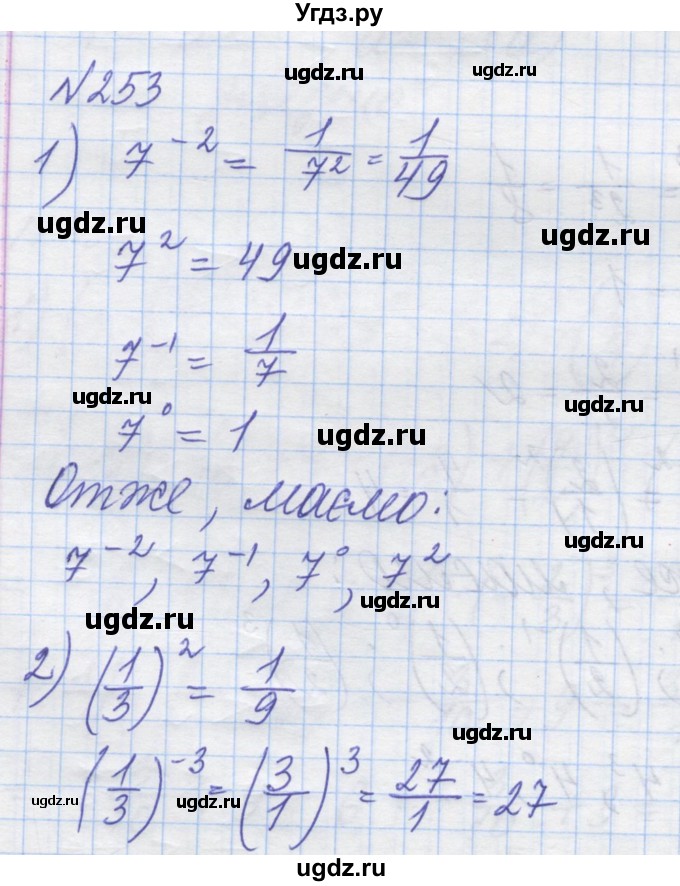 Угдз.ру
ugdz.ru ugdz.ru
№253
1) 7⁻² = 1/7² = 1/49
ugdz.ru ugdz.ru
7² = 49 ugdz.ru
7⁻¹ = 1/7
ugdz.ru ugdz.ru
7⁰ = 1 ugdz.ru
Отже, маємо:
ugdz.ru
7⁻², 7⁻¹, 7⁰, 7²
ugdz.ru ugdz.ru
2) (1/3)² = 1/9
ugdz.ru
(1/3)⁻³ = (3/1)³ = 27/1 = 27
ugdz.ru ugdz.ru ugdz.ru
ugdz.ru